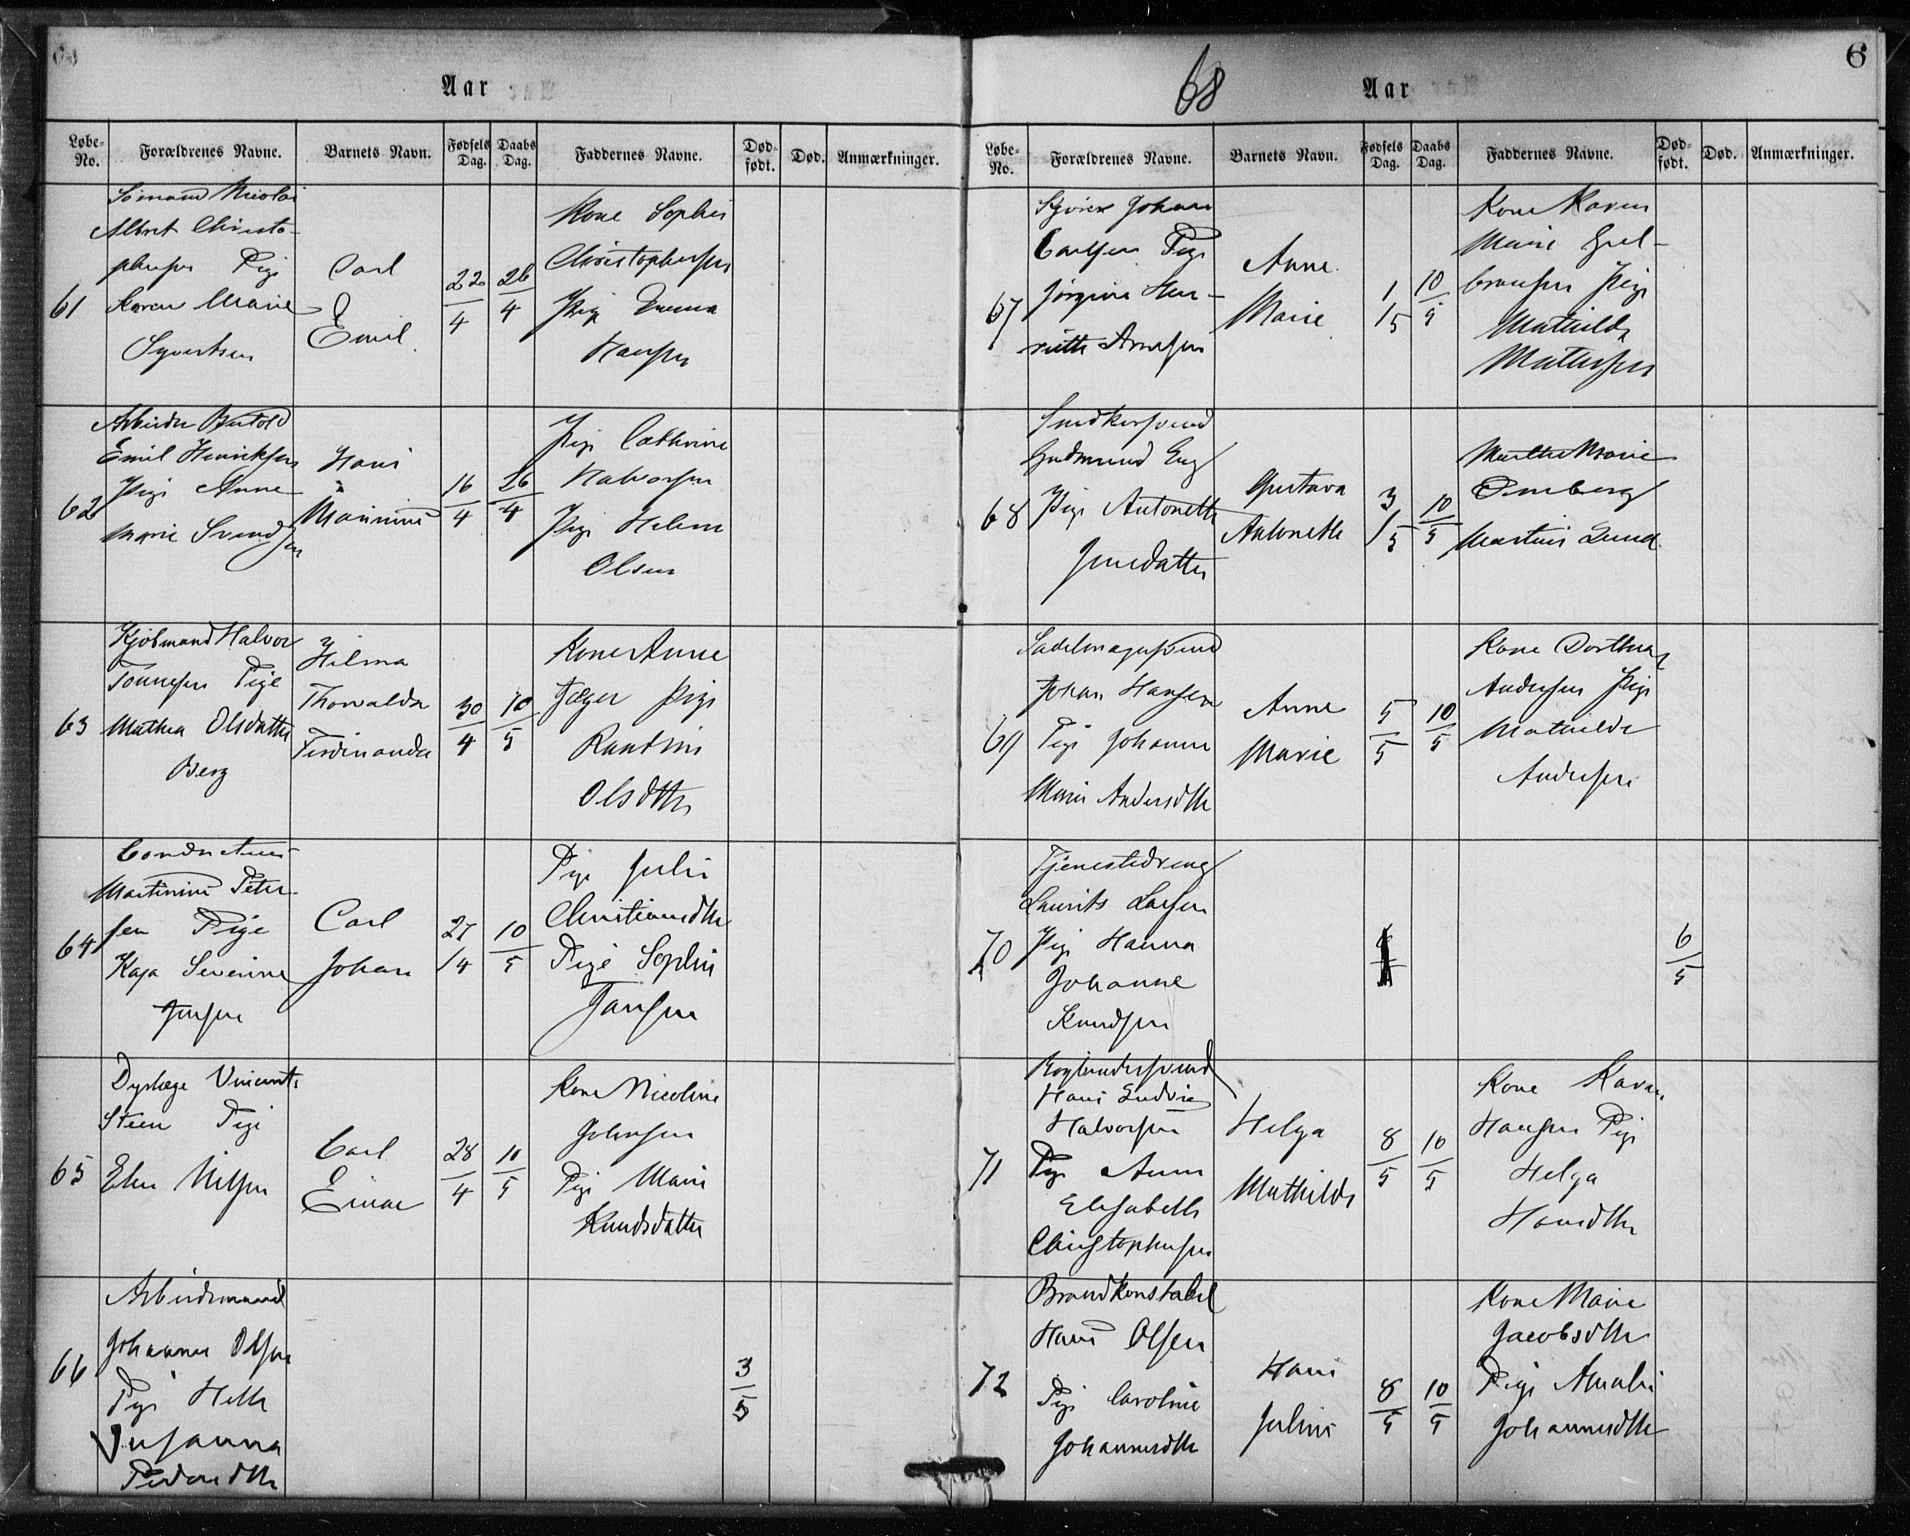 Aar
Løbe-No. Forældrenes Navne. Barnets Navn. Fødsels Dag. Daabs Dag. Faddernes Navne. Død-født. Død. Anmærkninger.
61
Sømand Nicolai
Albret Christo-
phersen Pige
Karen Marie
Syvertsen
Carl
Emil
22/4
26/4
Kone Sophie
Christophersen
Pige Emma
Hansen
62
Arbeider Bertold
Emil Henriksen
Pige Anne
Marie Svendsen
Hans
Marinius
16/4
26/4
Pige Cathrine
Halvorsen
Pige Helene
Olsen
63
Kjøbmand Halvor
Tønnesen Pige
Mathea Olsdatter
Berg
Hilma
Thorvalda
Ferdinanda
30/4
10/5
Kone Anne
Jæger Pige
Randine
Olsdtter
64
Conducteur
Martinius Peter-
sen Pige
Kaja Severine
Jensen
Carl
Johan
27/4
10/5
Pige Julie
Christiansdtr
Pige Sophie
Jansen
65
Dyrlæge Vincents
Steen Pige
Elen Nilsen
Carl
Einar
28/4
10/5
Kone Nicoline
Johnsen
Pige Marie
Knudsdatter
66
Arbeidsmand
Johannes Olsen
Pige Helle
Susanna
Pedersdtr
3/5
68
Aar
6
Løbe-No. Forældrenes Navne. Barnets Navn. Fødsels Dag. Daabs Dag. Faddernes Navne. Død-født. Død. Anmærkninger.
67
Johan
Carlsen Pige
Jørgine Hen-
riette Arnesen
Anne
Marie
1/5
10/5
Kone Karen
Marie Gul-
bransen Pige
Mathilde
Mathisen
68
Snedkersvend
Gudmund Eng
Pige Antonette
Jensdatter
Gustava
Antonette
3/5
10/5
Marthe Marie
Omberg
Martin Lund
69
Sadelmagersvend
Johan Hansen
Pige Johanne
Marie Andersdtr
Anne
Marie
5/5
10/5
Kone Dorthea
Andersen Pige
Mathilde
Andersen
70
Tjenestedreng
Laurits Larsen
Pige Hanna
Johanne
Knudsen
6/5
71
Bogbindersvend
Hans Ludvig
Halvorsen
Pige Anne
Elisabeth
Christophersen
Helga
Mathilde
8/5
10/5
Kone Karen
Hansen Pige
Helga
Hansdtr
72
Brandkonstabel
Hans Olsen
Pige Caroline
Johannesdtr
Hans
Julius
8/5
10/5
Kone Marie
Jacobsdtr
Pige Amalie
Johannesdtr